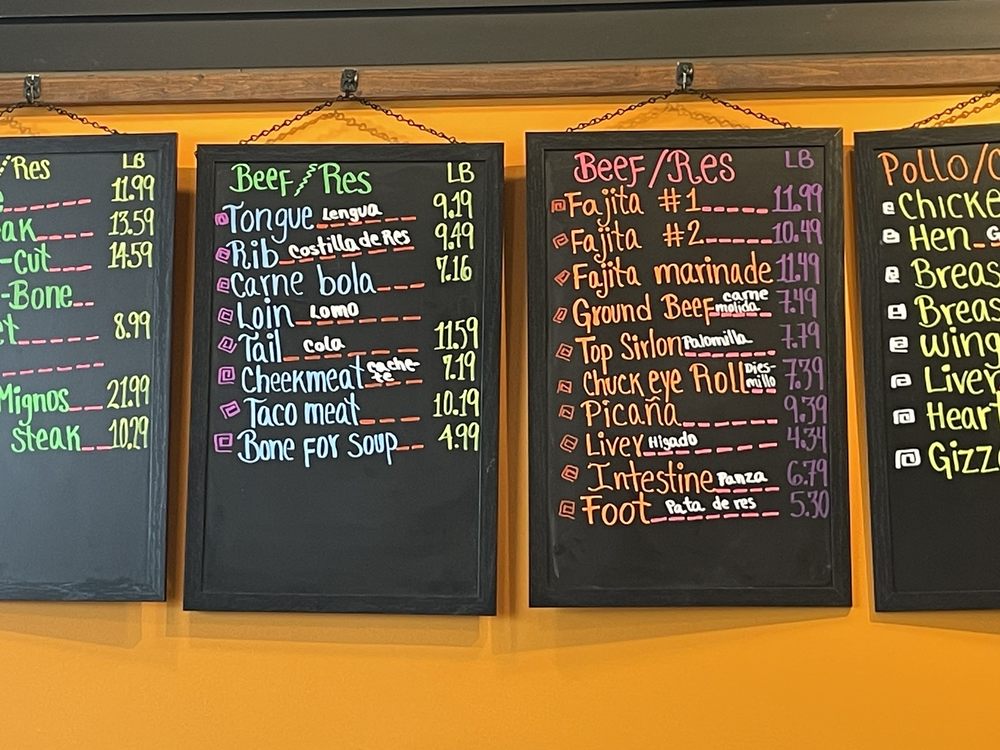 Res LB
11.99
13.59
-Cut 14.59
-Bone
8.99
Mignos 21.99
steak 10.29
Beef/Res LB
Tongue Lengua 9.19
Rib Costilla de Res 9.49
Carne bola 7.16
Loin Lomo
Tail Cola 11.59
Cheekmeat cache-te 7.19
Taco meat 10.19
Bone for soup 4.99
Beef/Res LB
Fajita #1 11.99
Fajita #2 10.49
Fajita marinade 11.49
Ground Beef carne molida 7.49
Top Sirlon Palomilla 7.79
Chuck eye Roll Dies-millo 7.39
Picaña 9.39
Liver Higado 4.34
Intestine Panza 6.79
Foot Pata de res 5.30
Pollo/
Chicke
Hen
Breas
Breas
Wing
Liver
Heart
Gizz